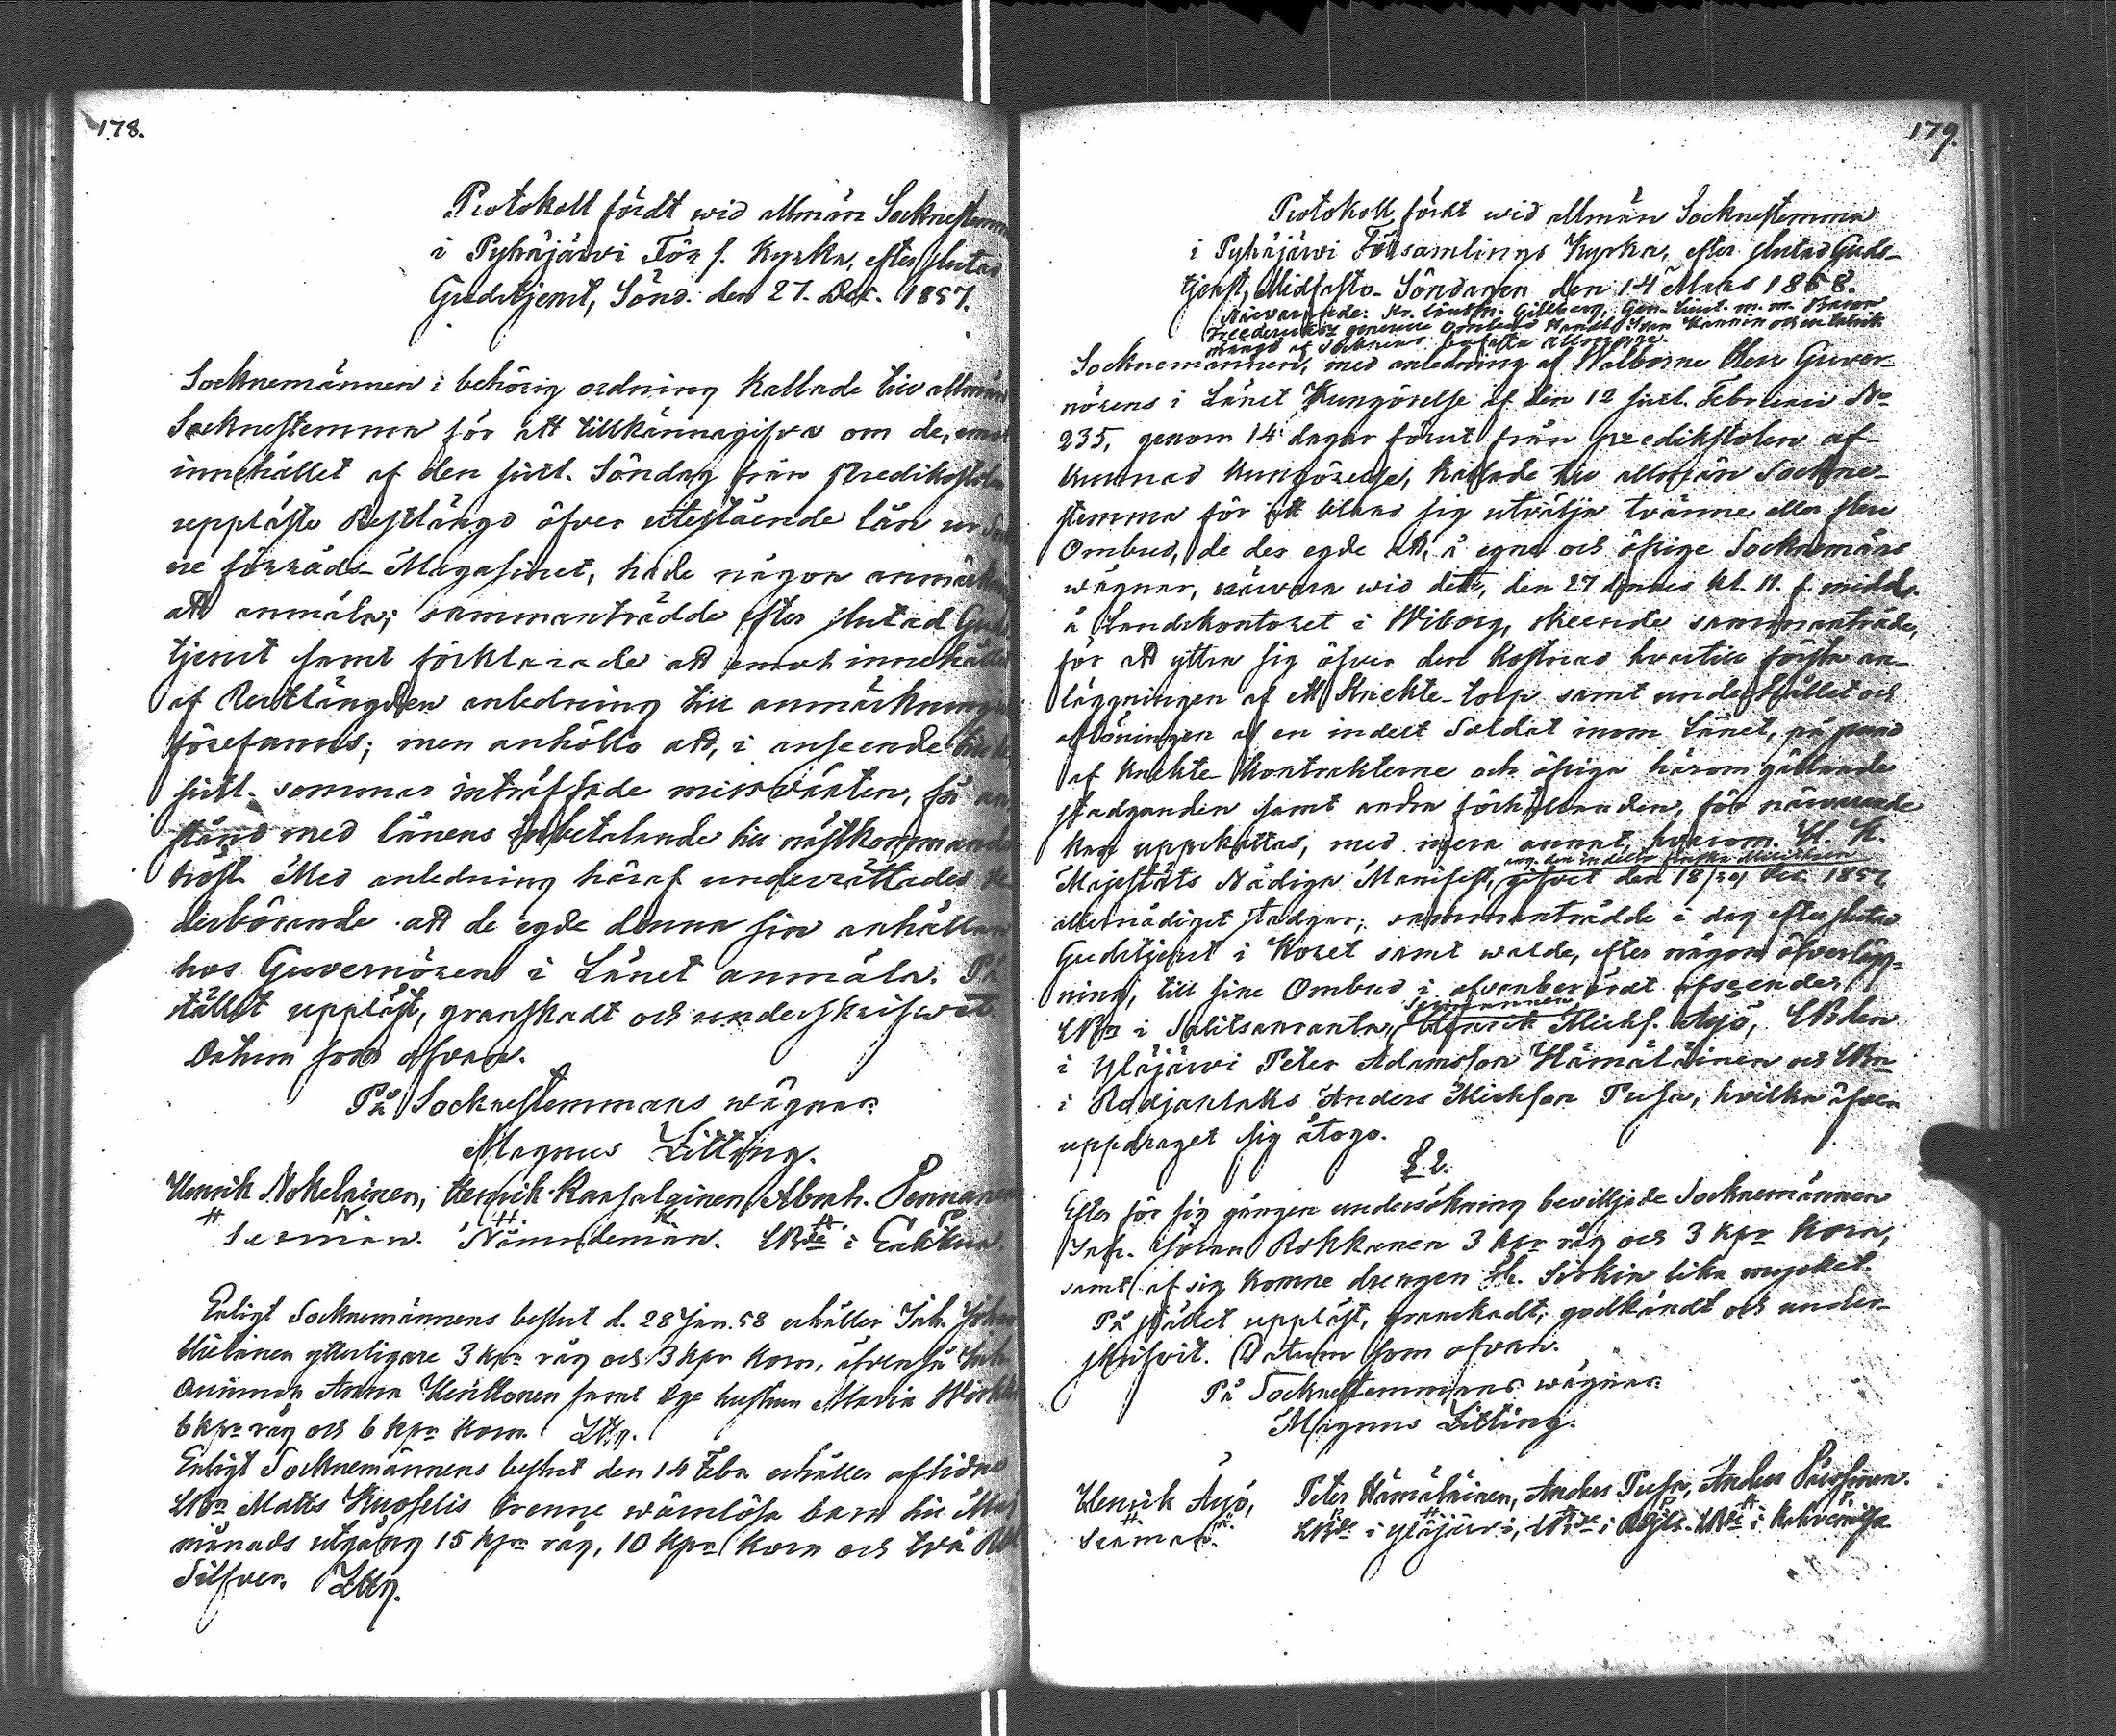 178.
Protokoll fördt wid allmän Socknestemma
i Pyhäjärwi Förs. Kyrka, efter slutad
Gudstjenst, Sönd. den 27. Dec. 1857.
Socknemännen i behörig ordning kallade till allmän
Socknestemma för att tillkännagifva om de, emot
innehållet af den sistl. Söndag från Predikstolen
uppläste Restlängd öfver utestående lån ur Sock
ne förråds-Magasinet, hade någon anmärkn
att anmäla; sammanträdde efter slutad Guds
tjenst samt förklarade att emot innehållet
af Restlängden anledning till anmärkning
förefanns; men anhöllo att, i anseende till den
sistl. sommar inträffade missväxten, få an
stånd med lånens inbetalande till nästkommande
höst. Med anledning häraf underrättades we
derbörande att de egde denna sin anhållan
hos Guvernören i Länet anmäla. På
stället uppläst, granskadt och underskrifwet.
Datum som ofvan.
På Socknestemmans wägnar
Magnus Litting.
Henrik Nokelainen, Henrik Kansalainen, Abrah. Pennanen
Sexman. Nämndeman. LBde i
Enligt Socknemännens beslut d. 28 Jan. 58 erhåller Inh. Johan
Mielonen ytterligare 3 kpr råg och 3 kpr korn, äfvenså Inh.
qvinnan Anna Hirttonen samt hustrun Maria
6 kpr råg och 6 kpr korn. Lttg.
Enligt Socknemännens beslut den 14 Febr erhåller aflidne
LBn Matts Kuoselis trenne wärnlösa barn till Maj
månads utgång 15 kpr råg, 10 kpr korn och två Rbl
Silfver. Lttg.
179.
Protokoll, fördt wid allmän Socknestemma
i Pyhäjärwi Församlings Kyrka, efter slutad Guds-
tjenst, Midfasto-Söndagen den 14 Mars 1858.
Närvarande: Kr. Länsm. Gillberg, Gen. Lieut. m. m. Baron
Freedericksz generelle Ombud Handl. Iwan Hannin och en talrik
mängd af Socknens bofasta Allmoge.
Socknemännen, med anledning af Walborne Herr Guver-
nörens i Länet Kungörelse af den 12 sistl. Februari No
235, genom 14 dagar förut från predikstolen af-
kunnad kungörelse, kallade till allmän Sockne-
stemma för att bland sig utvälja tvänne eller flere
Ombud, de der egde att, å egne och öfrige Socknemäns
wägnar, närvara wid det, den 27 dennes kl. 11. f. midd.
å Landskontoret i Wiborg, skeende sammanträde,
för att yttra sig öfver den kostnad hvartill första an-
läggningen af ett Knekte-torp samt underhållet och
aflöningen af en indelt Soldat inom Länet, på grund
af Knekte-Kontrakterne och öfriga härom gällande
stadganden samt andra förhållanden, för närvarande
kan uppskattas, med mera annat, hvarom H. K.
ang. den indelta finska Militären
Majestäts Nådiga Manifest, gifvet den 18/30 Dec. 1857
allernådigst stadgar; sammanträdde i dag efter slutad
Gudstjenst i Koret samt walde, efter någon öfverlägg-
ning, till sine Ombud i ofvanberördt afseende,
Sexmannen
LBn i Salitsanranta, Henrik Michs. Äijö, LBden
i Yläjärwi Peter Adamsson Hämäläinen och LBn
i Rodjantaks Anders Michsson Pusa, hvilka äfven
uppdraget sig åtogo.
§. 2.
Efter för sig gången undersökning beviljade Socknemännen
Inh. Göran Rokkanen 3 kpr råg och 3 kpr korn,
samt af sig komne drengen Sirkin lika mycket.
På stället uppläst, granskadt, godkändt och under-
skrifvit. Datum som ofvan.
På Socknestemmans wägnar
Magnus Litting.
Henrik Äijö, Peter Hämäläinen, Anders Pusa, Anders Pärssinen.
Sexman. LBde i Yläjärwi, LBde i LBde i